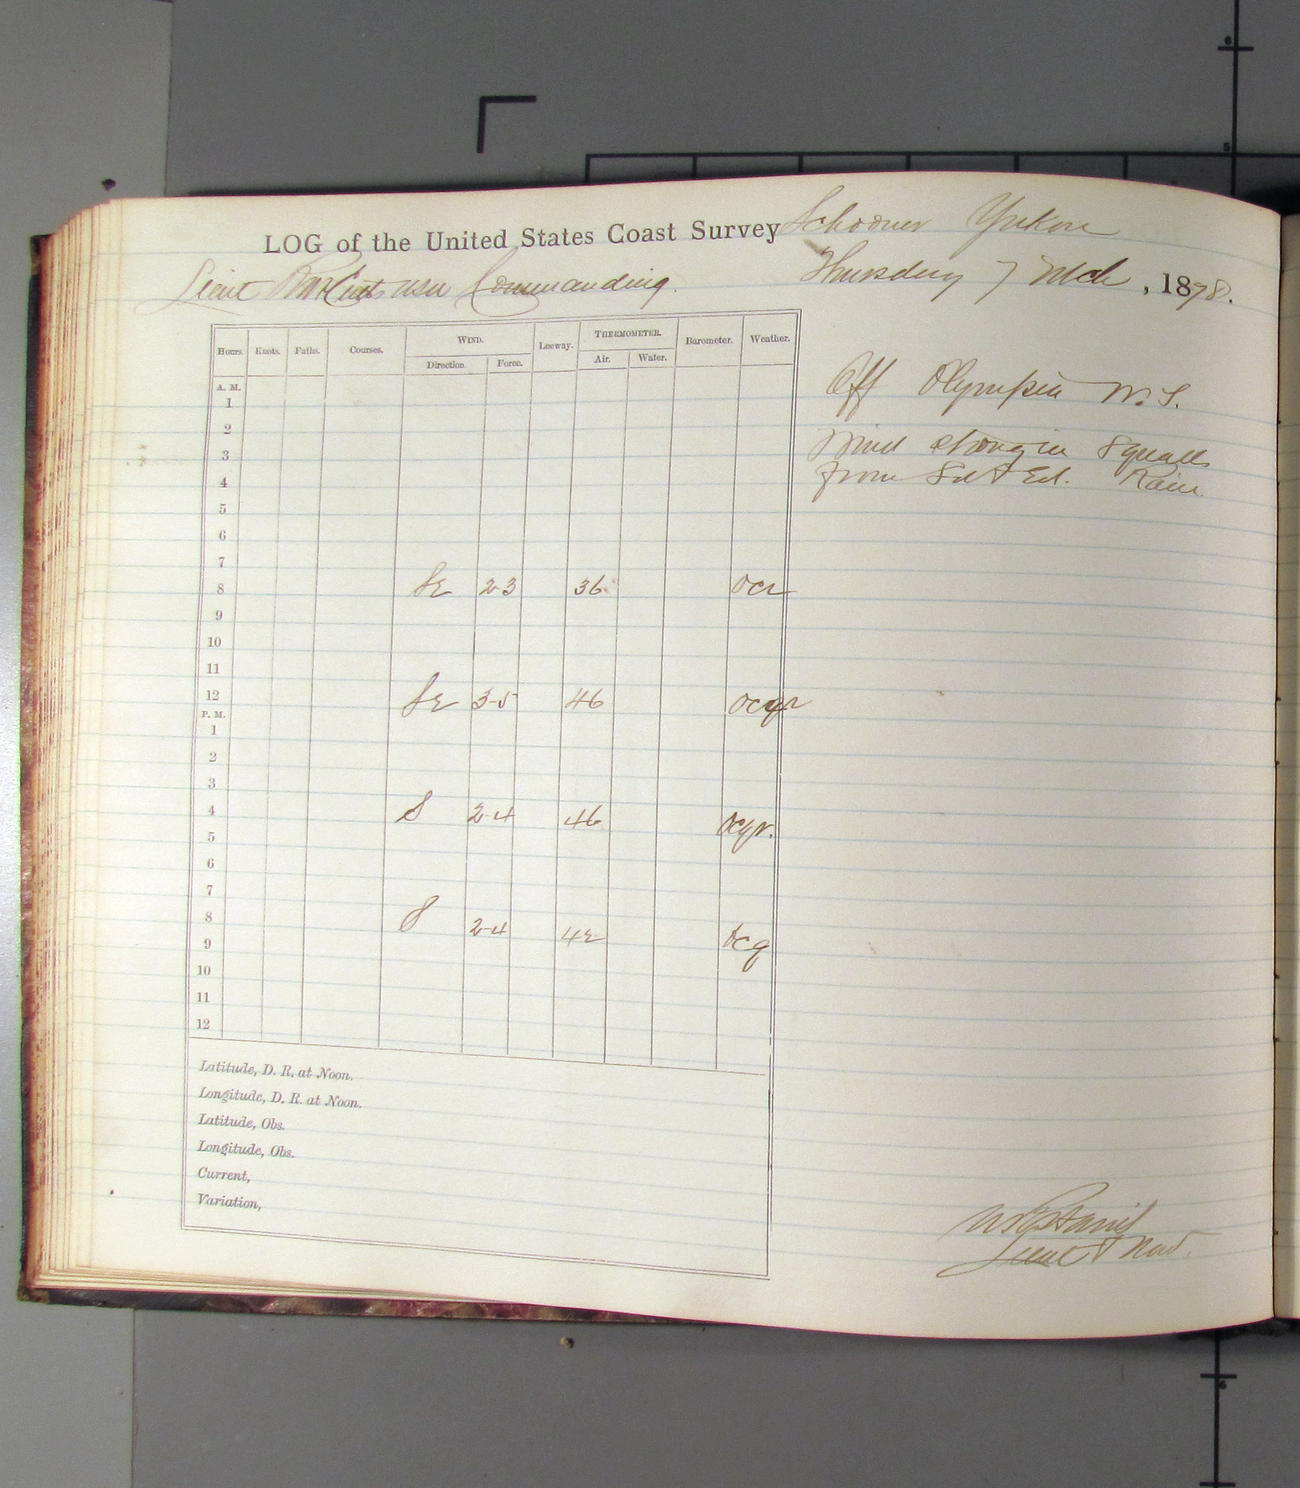 LOG of the United States Coast Survey Schooner Yukon
Lieut USN Commanding. Thursday 7 Mch, 1878.
Hours. Knots. Faths. Courses. WIND. Leeway. THERMOMETER. Barometer. Weather.
Direction. Force. Air. Water.
Off Olympia W. T.
A. M.
1
2
Wind strong in Squalls
3
from Sd & Ed. Rain
4
5
6
7
8 SE 2-3 36 ocr
9
10
11
12 SE 3-5 46 ocqr
P. M.
1
2
3
4 S 2-4 46 ocqr.
5
6
7
8 S 2-4 42 ocq
9
10
11
12
Latitude, D. R. at Noon.
Longitude, D. R. at Noon.
Latitude, Obs.
Longitude, Obs.
Current,
Variation,
Lieut & Nav.
6
5
6